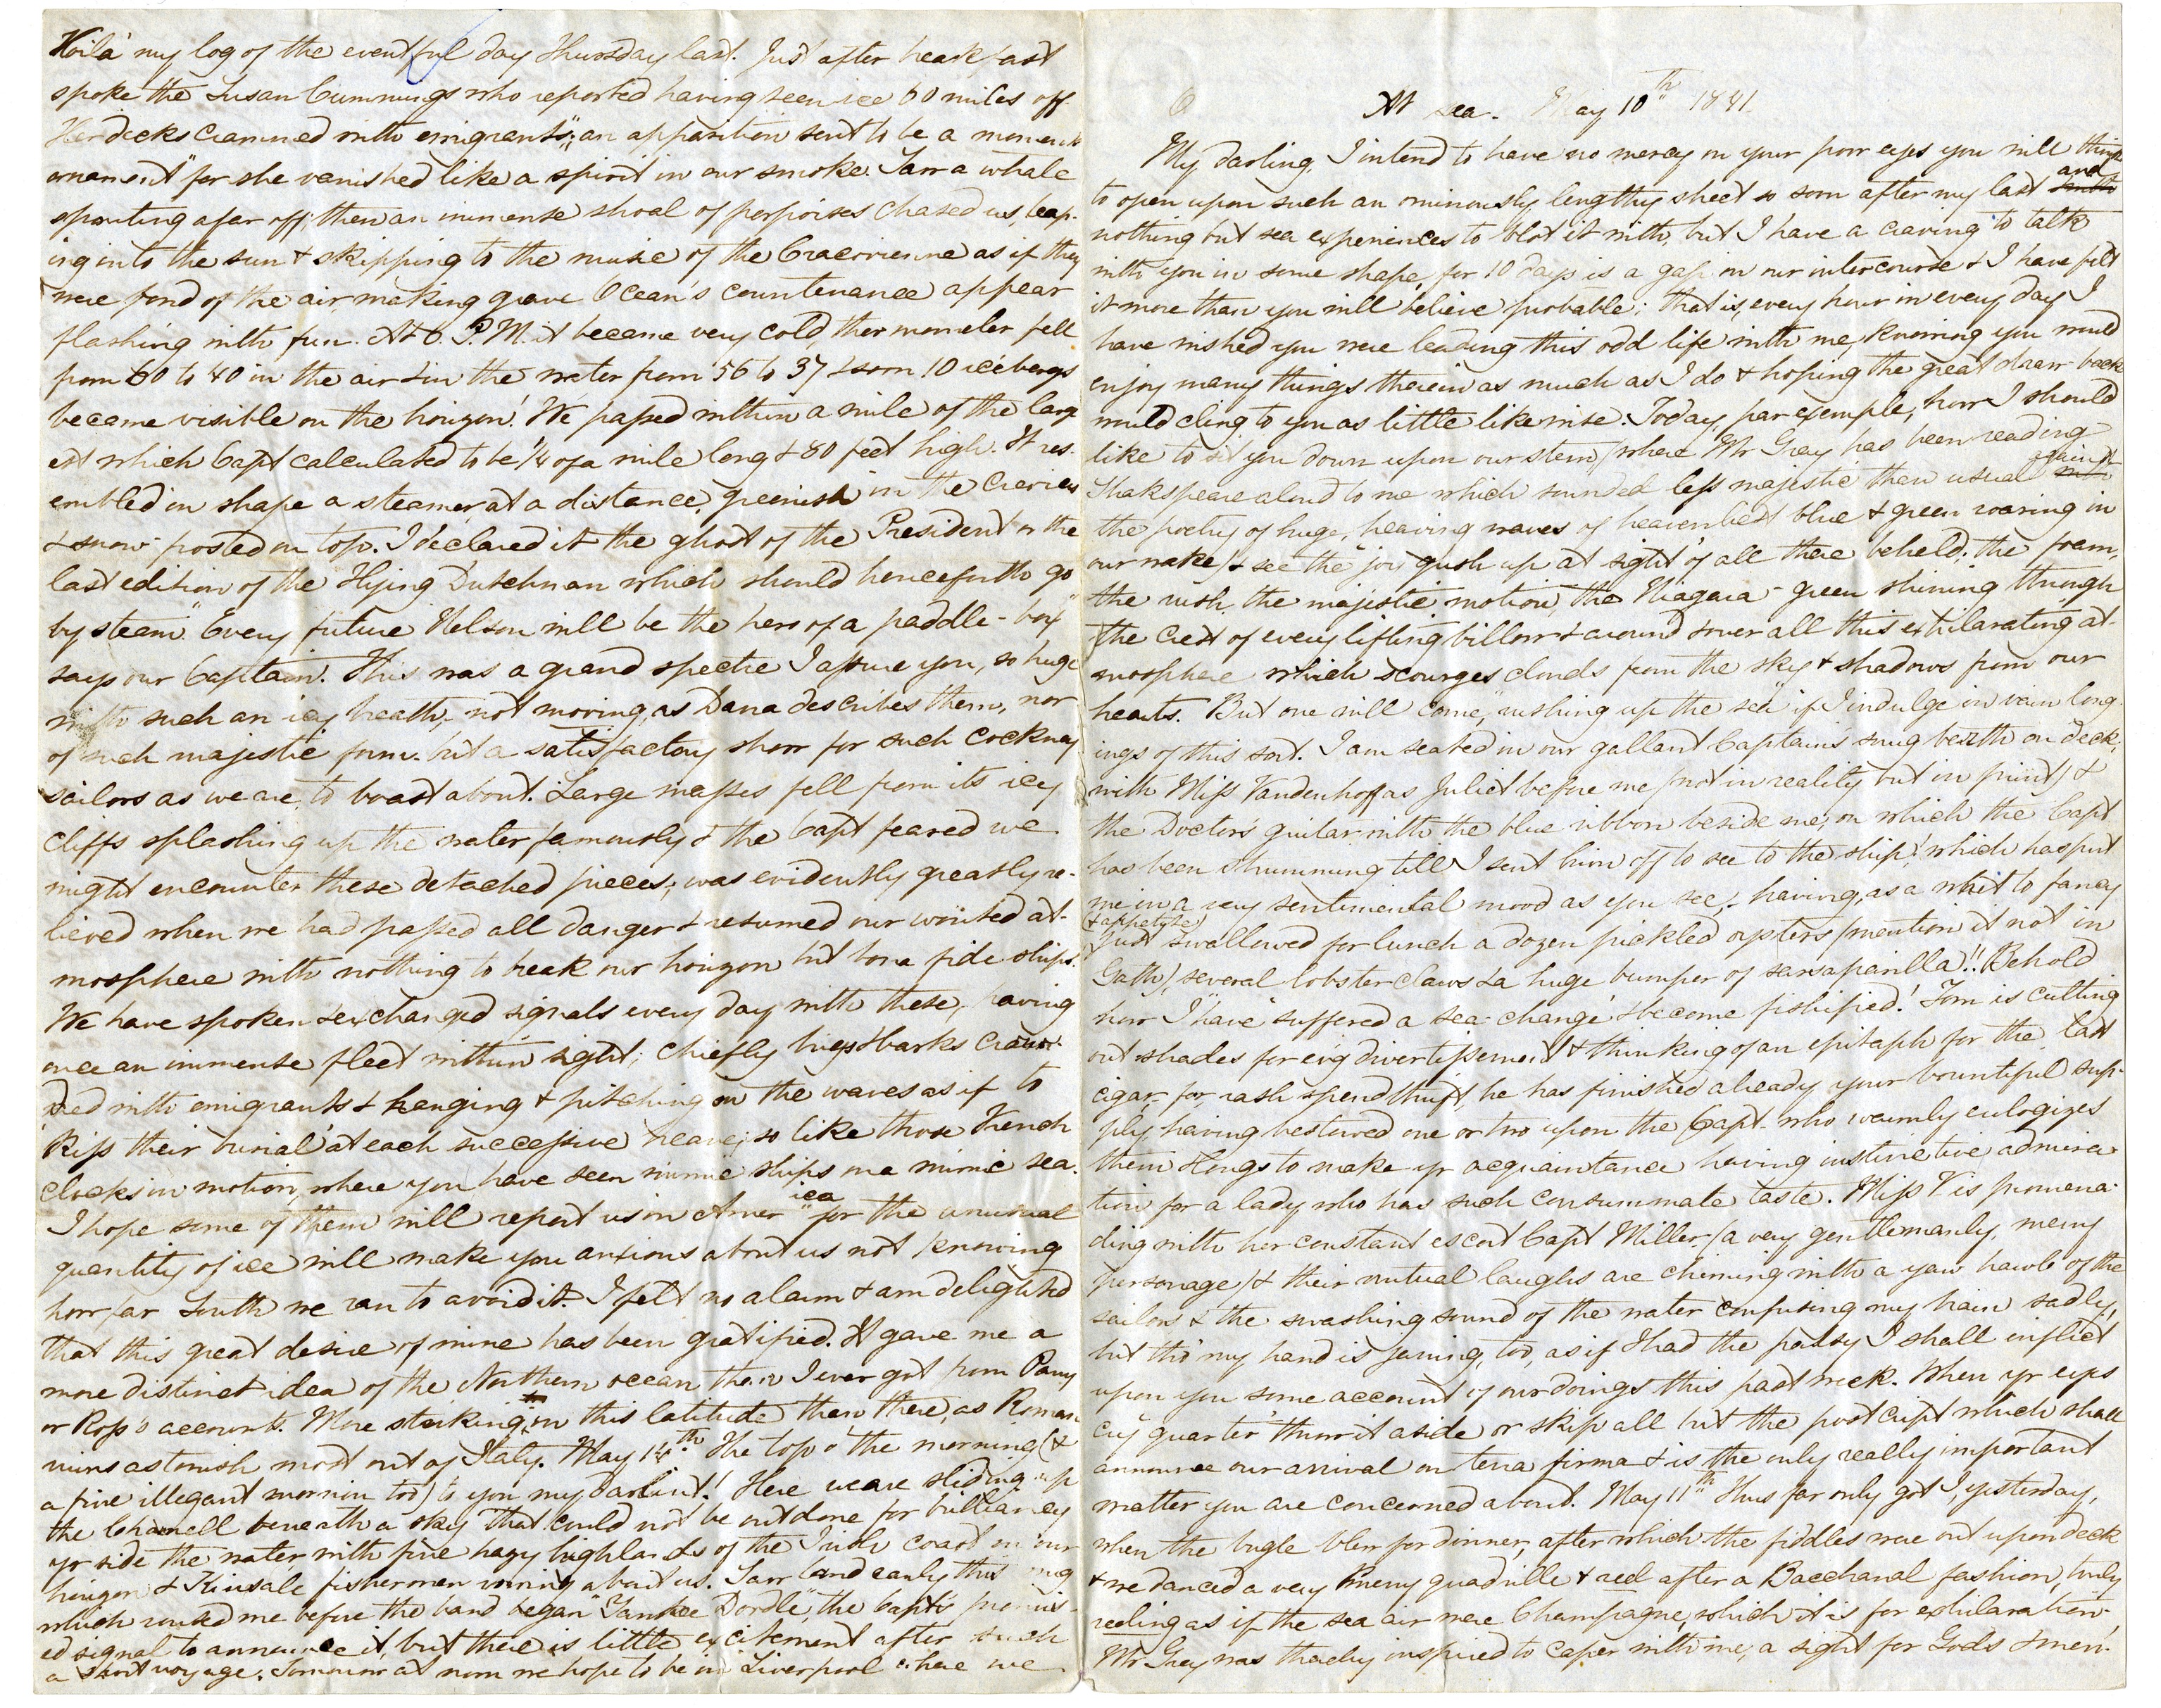 Voilà my log of the eventful day Thursday last. Just after breakfast
spoke the Susan Cummings who reported having seen ice 60 miles off.
Her decks crammed with emigrants; "an apparition sent to be a moment's
ornament" for she vanished like a spirit in our smoke. Saw a whale
spouting afar off; then an immense shoal of porpoises chased us, leap-
ing into the sun & skipping to the music of the Cracovienne as if they
were fond of the air, making grave Ocean's countenance appear
flashing with fun. At 6. P.M. it became very cold, thermometer fell
from 60 to 40 in the air & in the water from 56 to 37 & soon 10 icebergs
became visible on the horizon! We passed within a mile of the larg
est which Capt calculated to be 1/4 of a mile long & 80 feet high. It res-
embled in shape a steamer at a distance, greenish in the crevices
& snow-frosted on top. I declared it the ghost of the President or the
last edition of the "Flying Dutchman which should henceforth go
by steam". "Every future Nelson will be the hero of a paddle-box"
says our Captain. This was a grand spectre I assure you, so huge
with such an icy breath, not moving, as Dana describes them, nor
of such majestic form, but a satisfactory show for such cockney
sailors as we are, to boast about. Large masses fell from its icy
cliffs splashing up the water famously & the Capt feared we
might encounter these detached pieces; was evidently greatly re-
lieved when we had passed all danger & resumed our wonted at-
mosphere with nothing to break our horizon but bona fide ships.
We have spoken & exchanged signals every day with these, having
once an immense fleet within sight; chiefly brigs & barks crow-
ded with emigrants & hanging & pitching on the waves as if to
'kiss their burial' at each successive heave; so like those French
clocks in motion, where you have seen mimic ships on a mimic sea.
I hope some of them will report us in America for the unusual
quantity of ice will make you anxious about us not knowing
how far South we ran to avoid it. I felt no alarm & am delighted
that this great desire of mine has been gratified. It gave me a
more distinct idea of the Northern ocean than I ever got from Parry
or Ross's accounts. More striking in this latitude than there, as Roman
ruins astonish most out of Italy. May 14th The top o' the morning (&
a fine illegant mornin too) to you my darlint! Here we are sliding up
the Channell beneath a sky that could not be outdone for brilliancy
yr side the water, with fine hazy highlands of the Irish coast on our
horizon & Kinsale fishermen about us. Saw land early this mng
which roused me before the band began "Yankee Doodle", the Capt's promis-
ed signal to announce it, but there is little excitement after such
a short voyage. Tomorrow at noon we hope to be in Liverpool where we
At sea. May 10th 1841.
My darling, I intend to have no mercy on your poor eyes you will think
to open upon such an ominously lengthy sheet so soon after my last and
nothing but sea experiences to blot it with, but I have a craving to talk
with you in some shape, for 10 days is a gap in our intercourse & I have felt
it more than you will believe probable; that is, every hour in every day I
have wished you were leading this odd life with me, knowing you would
enjoy many things therein as much as I do & hoping the great draw-back
would cling to you as little likewise. Today, par exemple, how I should
like to sit you down upon our stern (where Mr Gray has been reading
Shakspeare aloud to me which sounded less majestic than usual against
the poetry of huge, heaving waves of heavenliest blue & green roaring in
our wake) & see the "joy gush up at sight" of all there beheld; the foam,
the rush, the majestic motion, the Niagara-green shining through
the crest of every lifting billow & around & over all this exhilarating at-
mosphere which scourges clouds from the sky & shadows from our
hearts. But one will "come, rushing up the sea" if I indulge in vain long-
ings of this sort. I am seated in our gallant Captain's snug berth on deck,
with Miss Vandenhoff as Juliet before me (not in reality but in print) &
the Doctor's guitar with the blue ribbon beside me, on which the Capt
has been strumming till I sent him off to see to the ship! which has put
me in a very sentimental mood as you see, having, as a whet to fancy
(& appetite) just swallowed for lunch a dozen pickled oysters (mention it not in
Gath), several lobster claws & a huge bumper of sarsaparilla!! Behold
how I have "suffered a sea-change" & become fishified! Tom is cutting
out shades for evg divertissement & thinking of an epitaph for the last
cigar, for, rash spendthrift, he has finished already your bountiful sup-
ply, having bestowed one or two upon the Capt. who warmly eulogizes
them & longs to make yr acquaintance having instinctive admira-
tion for a lady who has such consummate taste. Miss V is promena-
ding with her constant escort Capt Miller (a very gentlemanly, merry
personage) & their mutual laughs are chiming with a yaw hawb of the
sailors & the swashing sound of the water confusing my brain sadly,
but tho' my hand is jarring, too, as if I had the palsy I shall inflict
upon you some account of our doings this past week. When yr eyes
cry quarter throw it aside or skip all but the postcript which shall
announce our arrival on terra firma & is the only really important
matter you are concerned about. May 11th Thus far only got I, yesterday,
when the bugle blew for dinner, after which the fiddles were out upon deck
& we danced a very merry quadrille & reel after a Bacchanal fashion, truly
reeling as if the sea air were Champagne, which it is for exhilaration.
Mr Gray was thereby inspired to caper with me, a sight for Gods & men.